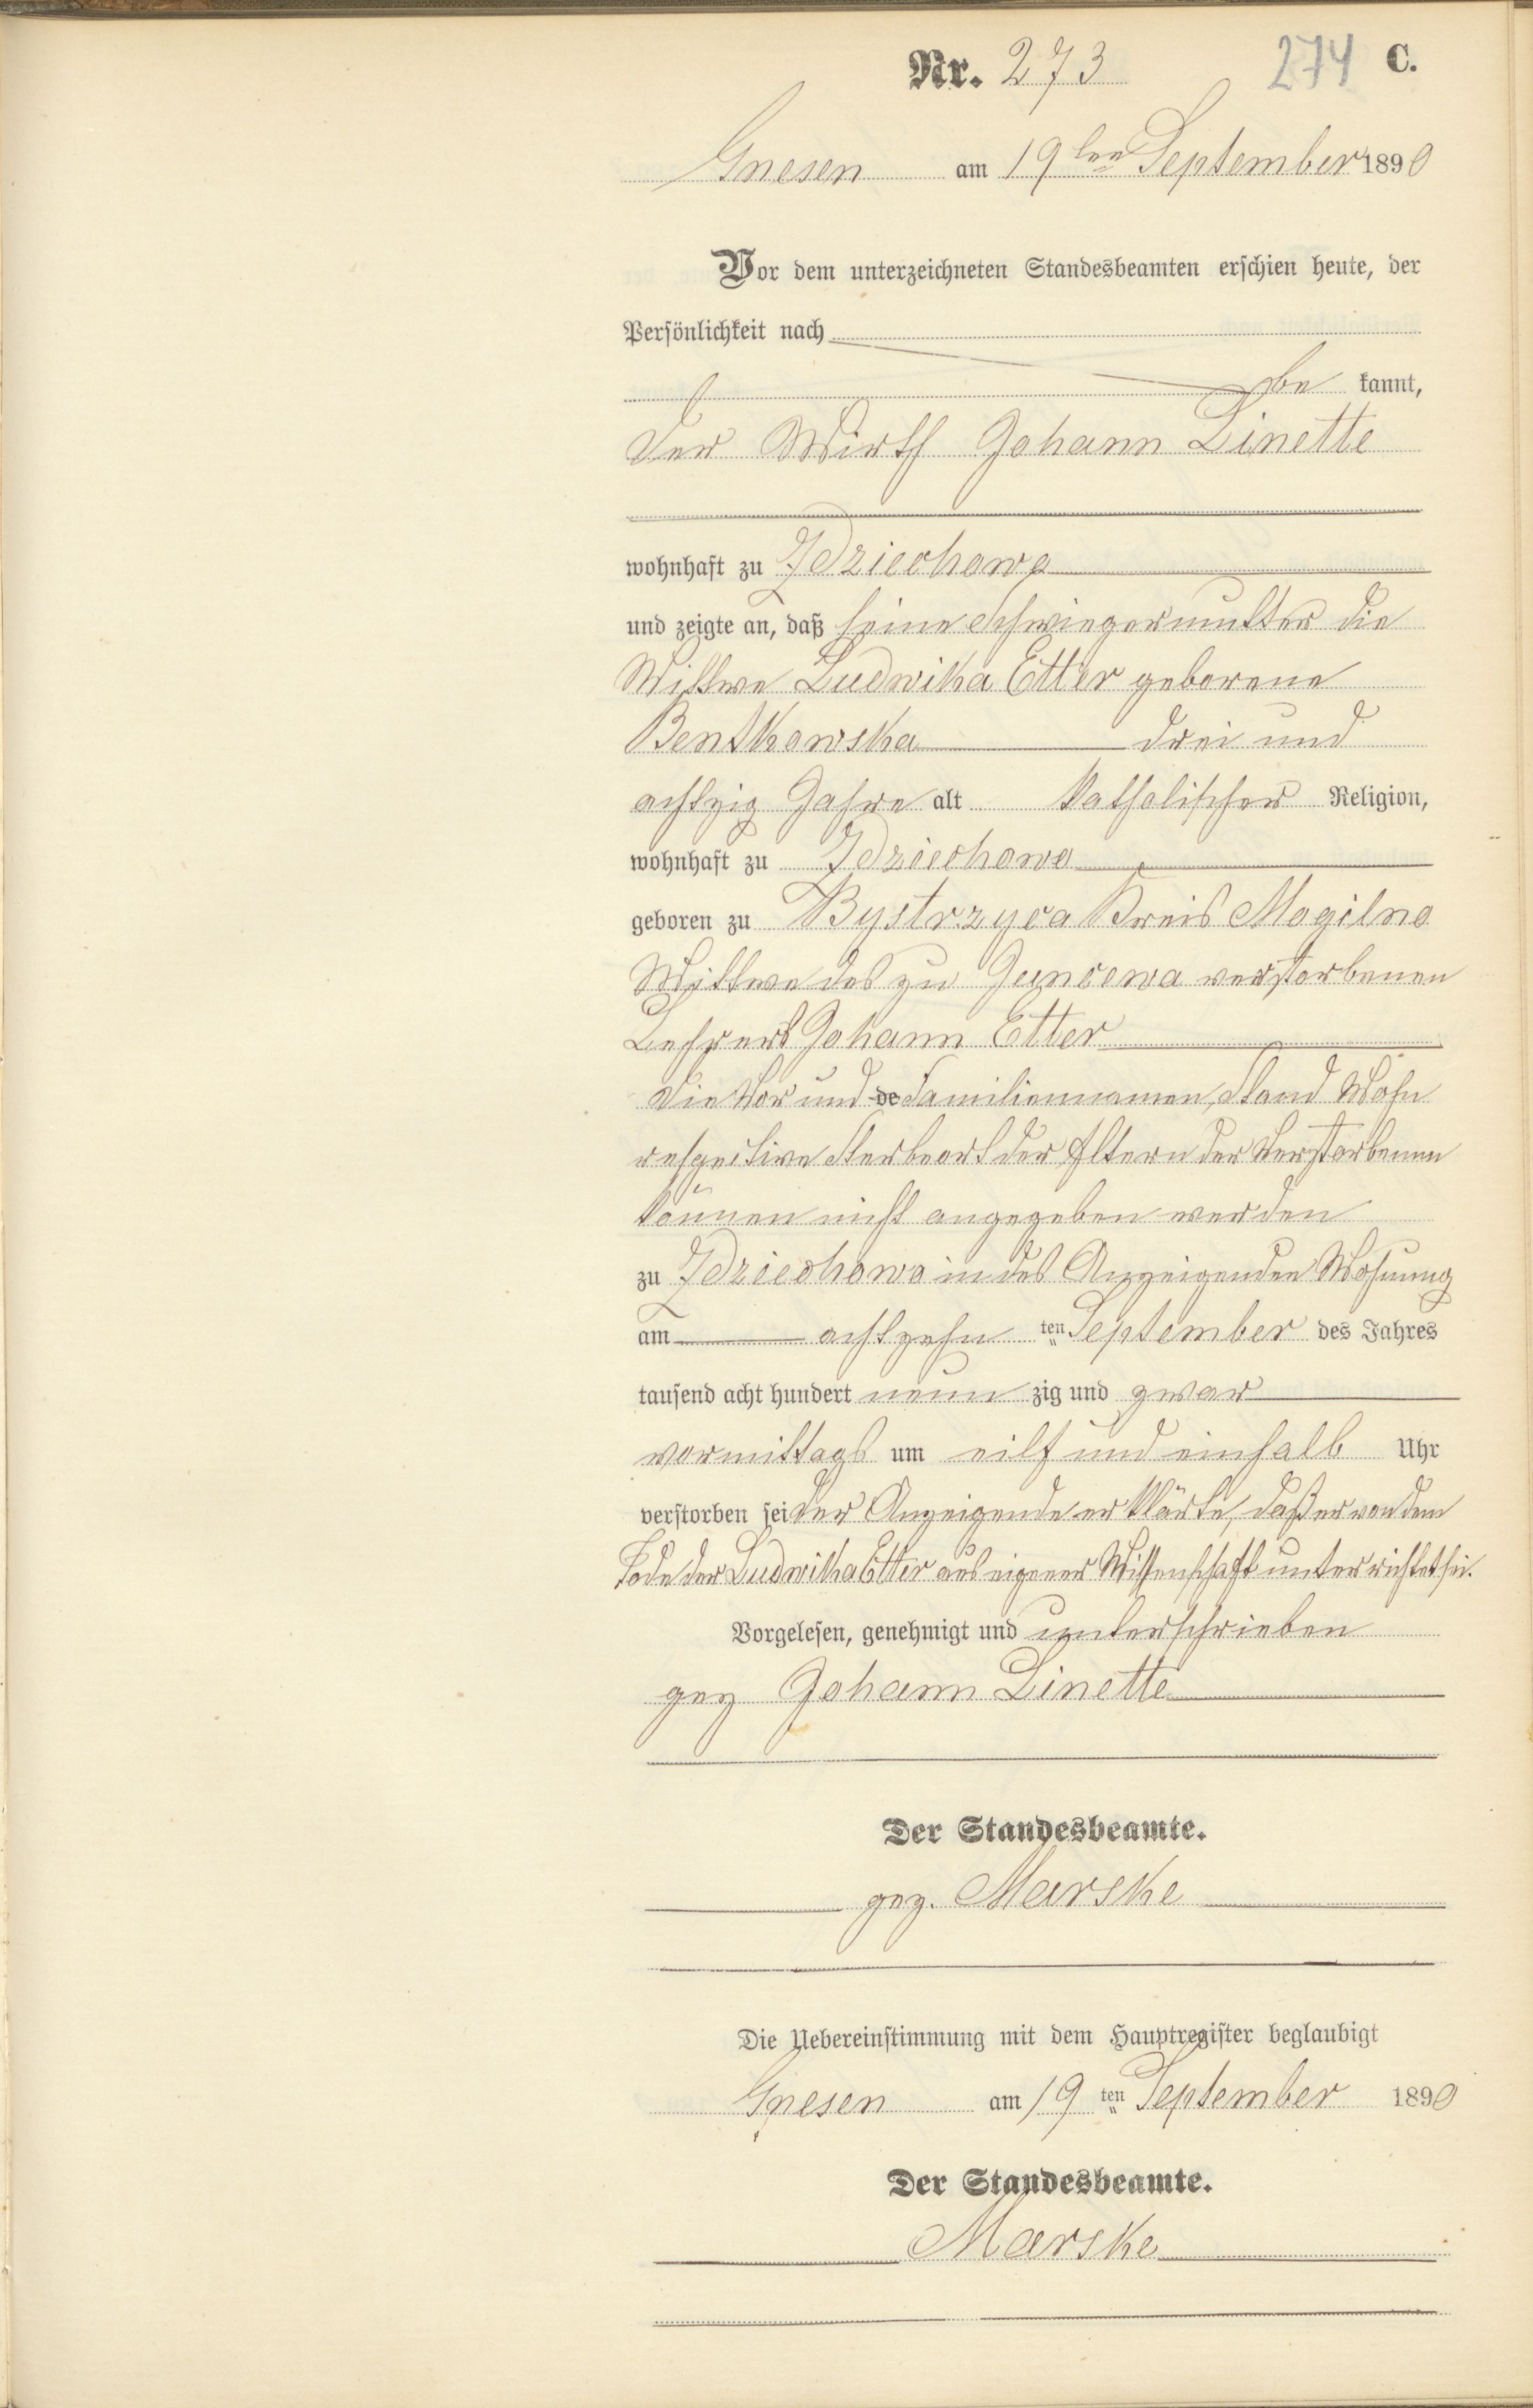 Nr. 273 274 C.
Gnesen am 19ten September 1890
Vor dem unterzeichneten Standesbeamten erschien heute, der
Persönlichkeit nach
be kannt,
der Wirth Johann Linette
wohnhaft zu Zdziechowa
und zeigte an, daß seine Schwiegermutter die
Wittwe Ludwika Etter geborene
Bentkowska drei und
achtzig Jahre alt katholischer Religion,
wohnhaft zu Zdziechowa
geboren zu Bystrzyca Kreis Mogilno
Wittwe des zu verstorbenen
Lehrers Johann Etter
die Vor und de Familiennamen, Stand Wohn
respective Sterbeort der Eltern der Verstorbenen
können nicht angegeben werden
zu Zdziechowa in des Anzeigenden Wohnung
am achtzehn ten September des Jahres
tausend acht hundert neun zig und zwar
vormittags um eilf und einhalb Uhr
verstorben sei der Anzeigende erklärte, daß er von dem
Tode der Ludwika Etter aus eigener Wissenschaft unterrichtet sei.
Vorgelesen, genehmigt und unterschrieben
gez Johann Linette
Der Standesbeamte.
gez. Marske
Die Uebereinstimmung mit dem Hauptregister beglaubigt
Gnesen am 19 ten September 1890
Der Standesbeamte.
Marske